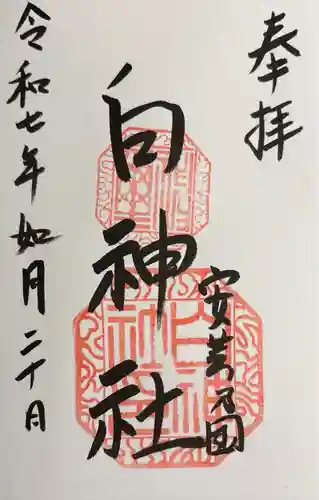 奉拝
安芸乃国
白神社
令和七年如月二十日